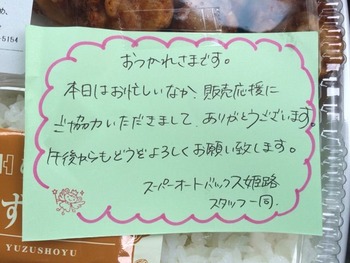 おつかれさまです。
本日はお忙しいなか、販売応援に
ご協力いただきまして、ありがとうございます。
午後からもどうぞよろしくお願い致します。
スーパーオートバックス姫路
スタッフ一同.
5154
す
YUZUSHOYU